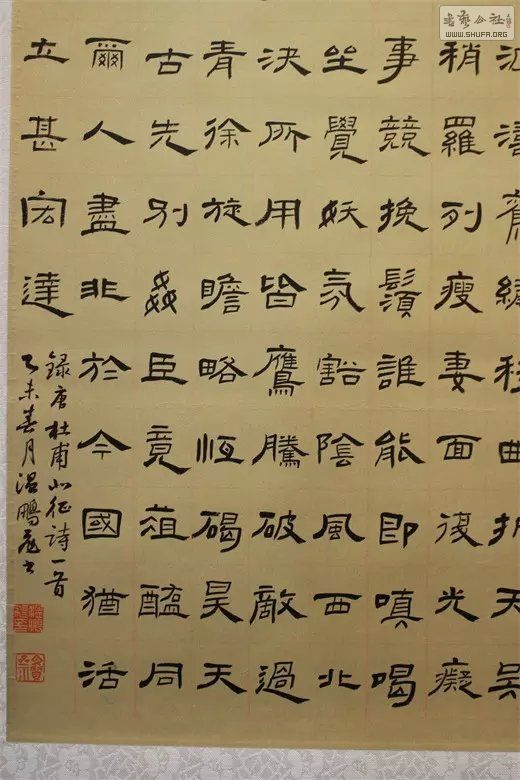 書藝公社
WWW.SHUFA.ORG
波濤舊繡移曲折天吳
稍羅列瘦妻面復光癡
事競挽鬚誰能即嗔喝
坐覺妖氛豁陰風西北
決所用皆鷹騰破敵過
青徐旋瞻略恆碣昊天
古先別姦臣竟菹醢同
爾人盡非於今國猶活
立甚宏達
録唐杜甫北征詩一首
乙未春月温鵬飛書